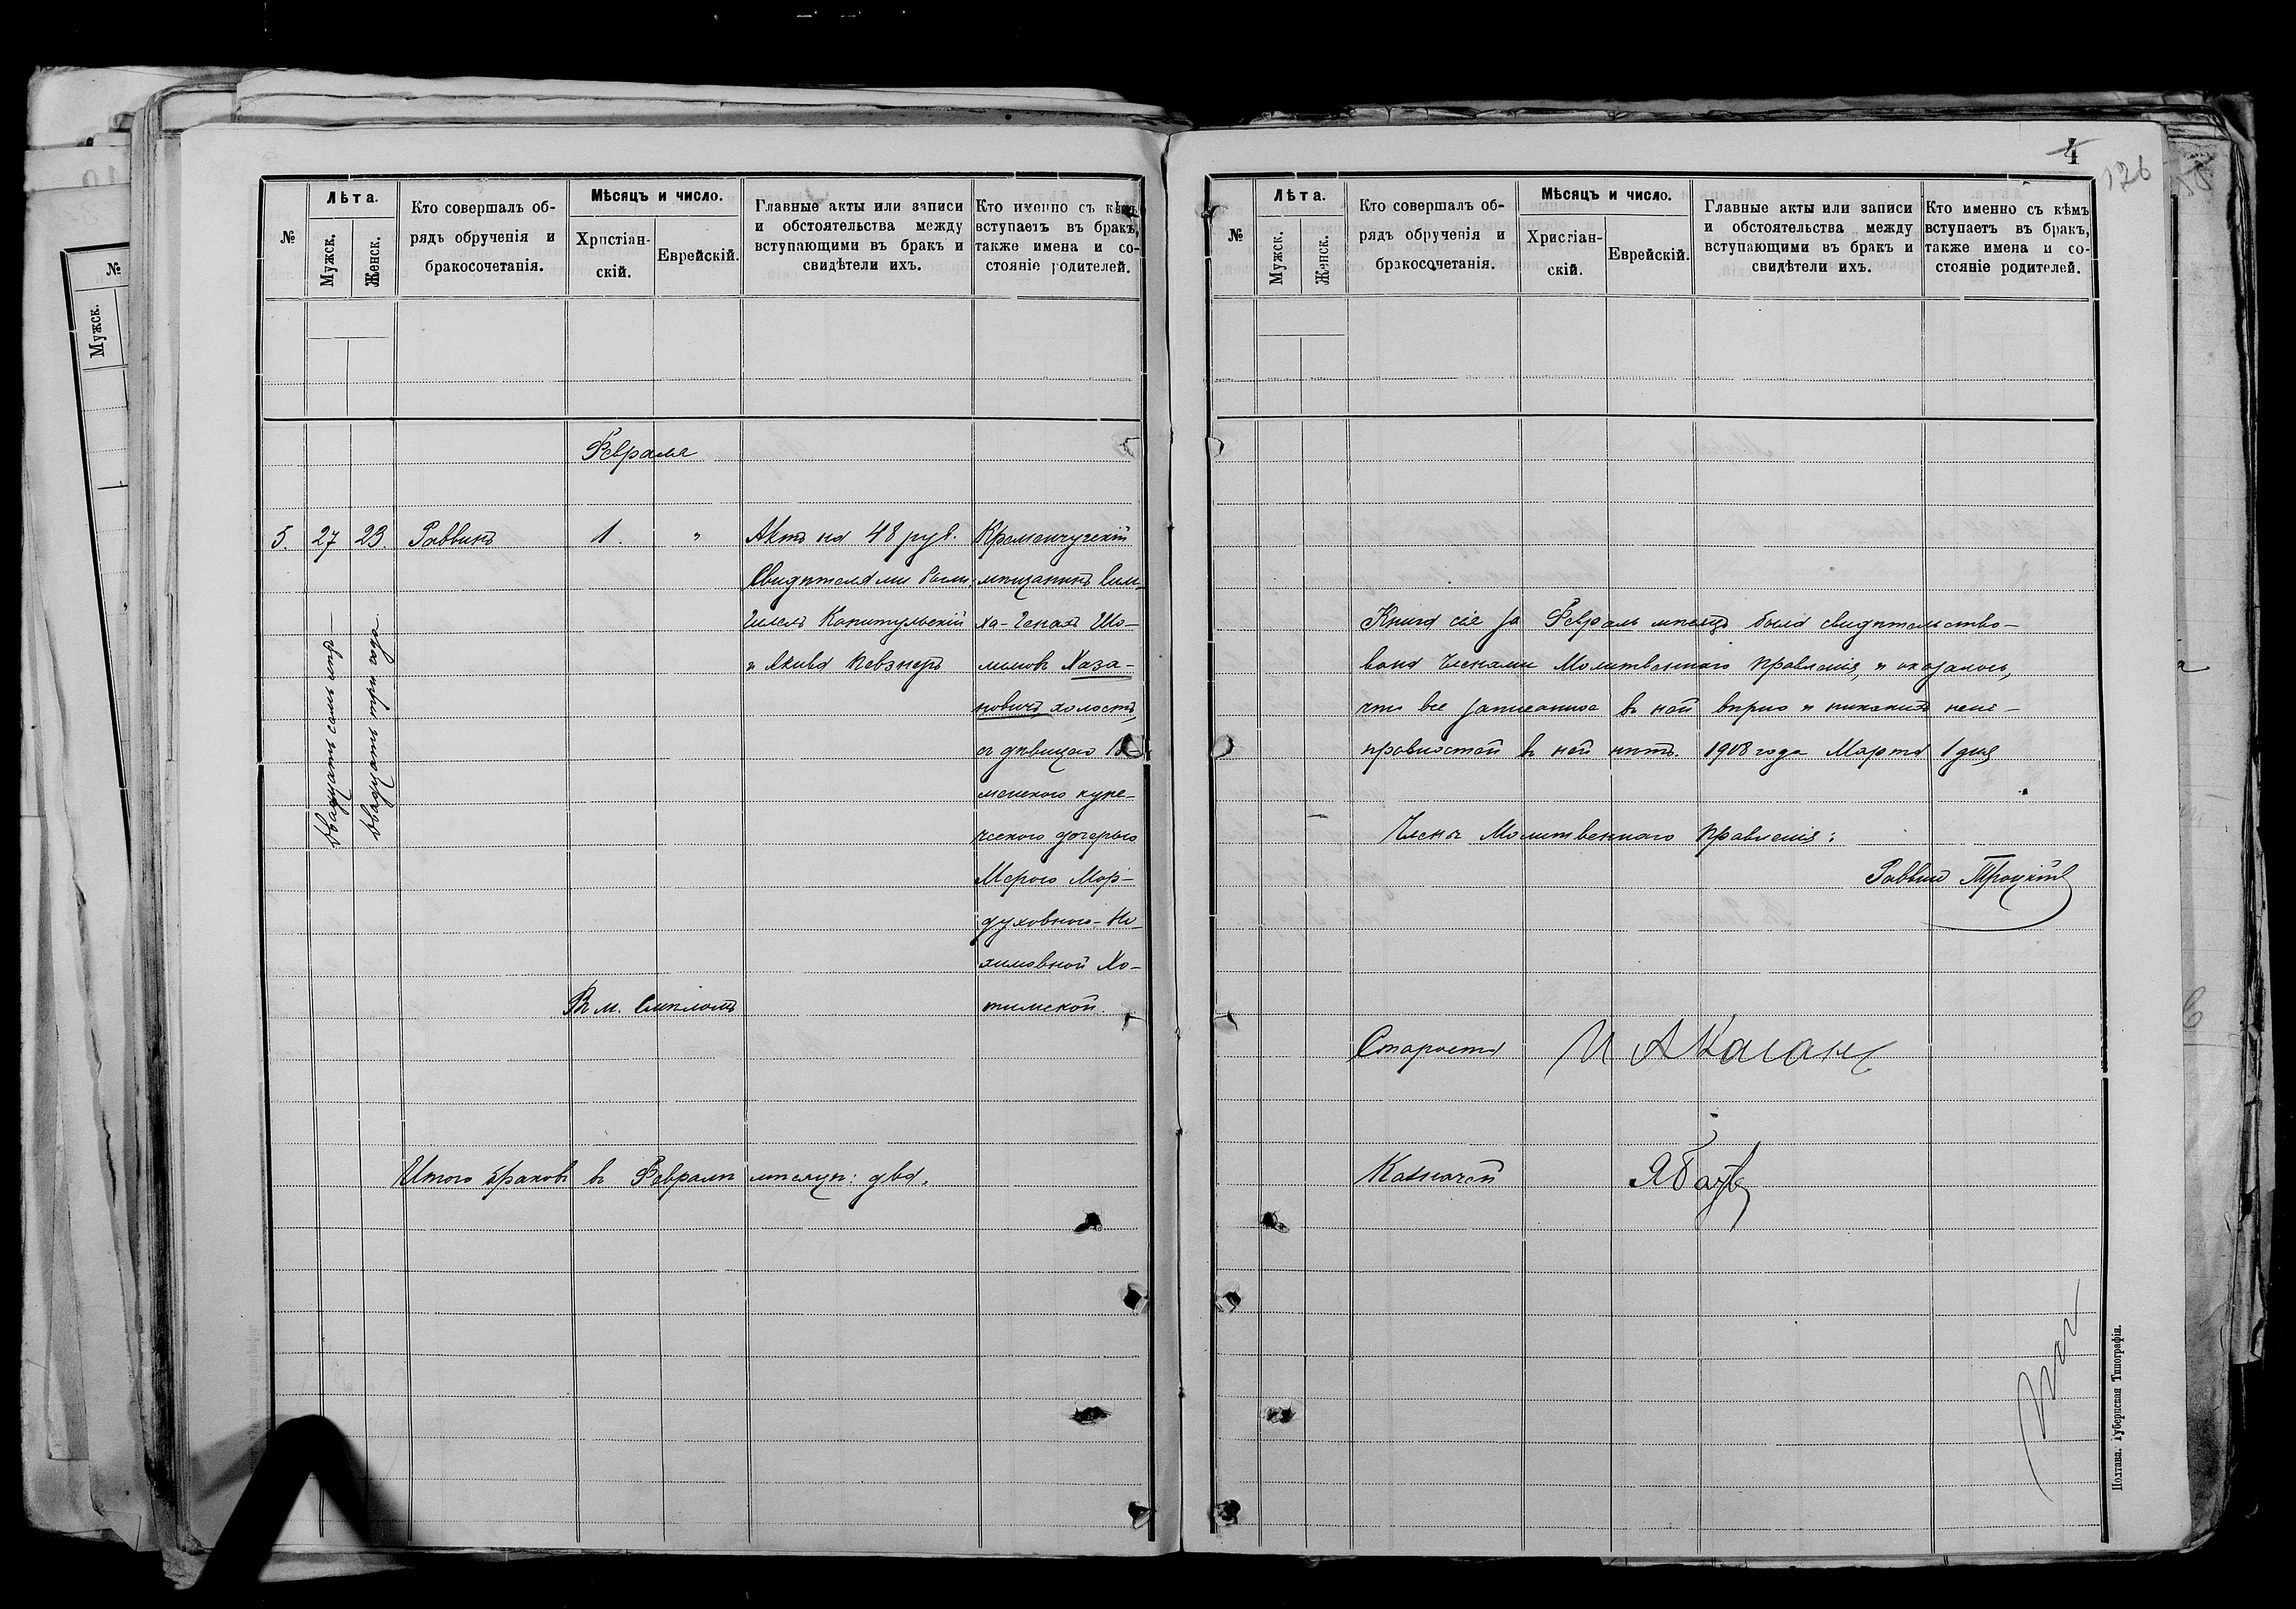 №
Лѣта.
Мужск.
Женск.
Кто совершалъ об-
рядъ обрученія и
бракосочетанія.
Мѣсяцъ и число.
Христіан-
скій.
Еврейскій.
Главные акты или записи
и обстоятельства между
вступающими въ бракъ и
свидѣтели ихъ.
Кто именно съ кѣмъ
вступаетъ въ бракъ,
также имена и со-
стояніе родителей.
Февраля
5.
27
23.
двадцать семь лѣтъ
двадцать три года
Раввинъ
1.
"
Въ м. Смѣломъ
Актъ на 48 руб.
Свидѣтелями были:
Гилель Капитульскій
и Акива Певзнеръ
Кременчугскій
мѣщанинъ Сим-
ха-Генахъ Шо-
лимовъ Хаза-
новичъ, холостъ,
съ дѣвицею
менскаго купе-
ческого дочерью
Мерою Мор-
духовною-На-
химовной Хо-
тимской.
Итого браковъ въ Февралѣ мѣсяцѣ: два.
4
126
№
Лѣта.
Мужск.
Женск.
Кто совершалъ об-
рядъ обрученія и
бракосочетанія.
Мѣсяцъ и число.
Христіан-
скій.
Еврейскій.
Главные акты или записи
и обстоятельства между
вступающими въ бракъ и
свидѣтели ихъ.
Кто именно съ кѣмъ
вступаетъ въ бракъ,
также имена и со-
стояніе родителей.
Книга сіе за Февраль мѣсяцъ была свидѣтельство-
вана Членами Молитвеннаго Правленія, и оказалось,
что все записанное въ ней вѣрно и никакихъ неис-
правностей въ ней нѣтъ. 1908 года Марта 1 дня
Члены Молитвеннаго Правленія:
Раввинъ Троцкій
Староста И А Каганъ
Казначей
Полтава. Губернская Типографія.
№
Мужск.